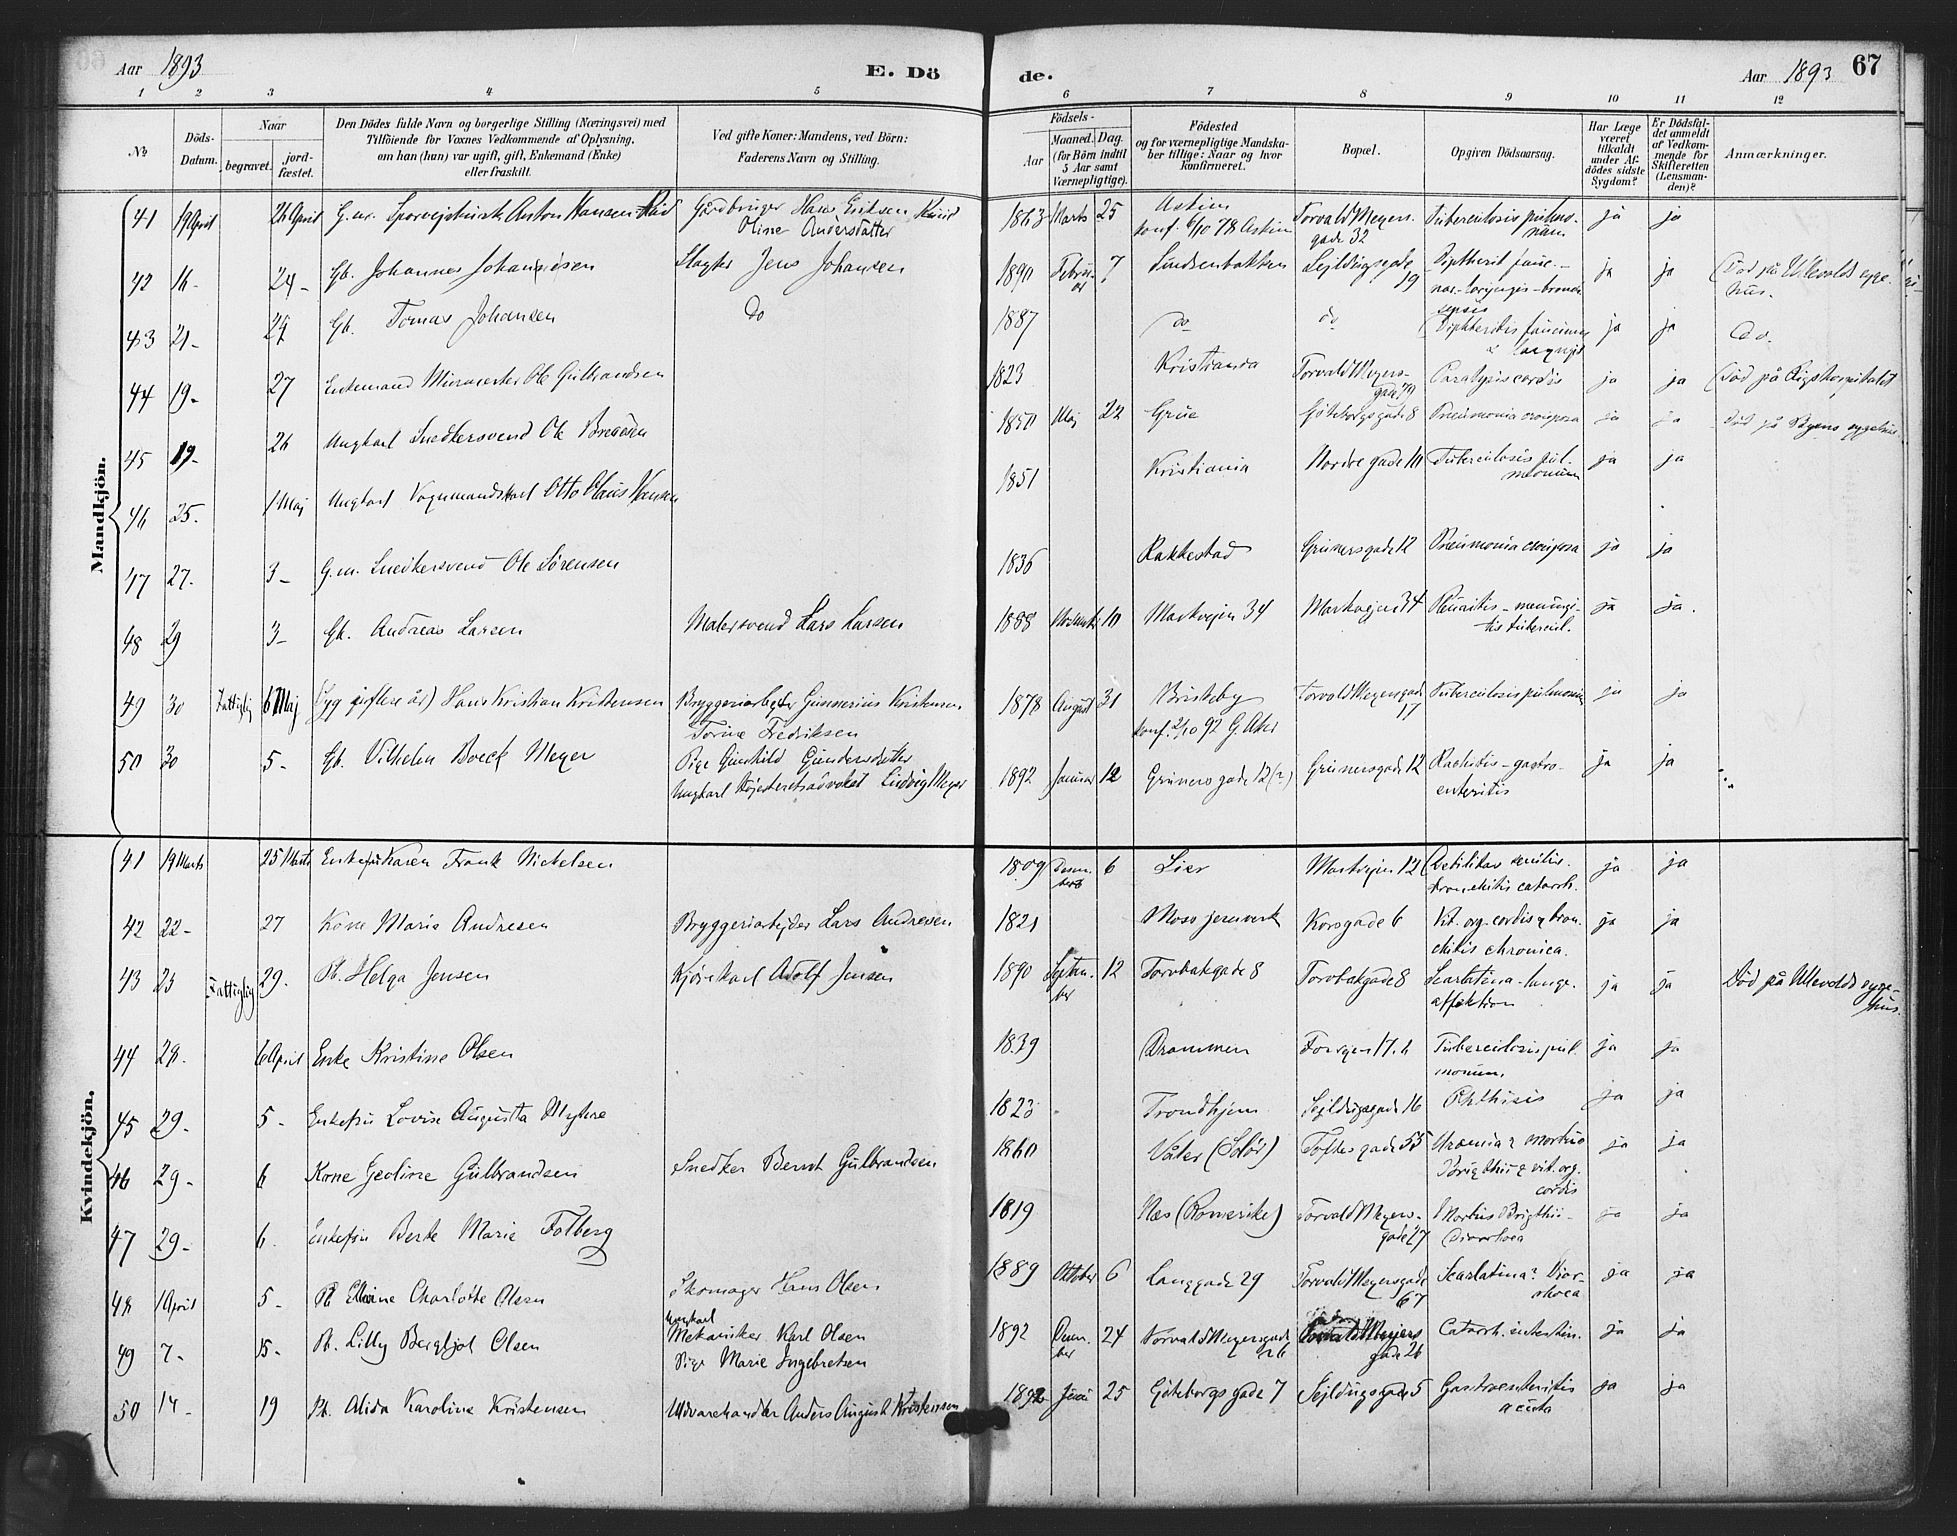 Aar 1893 E. Dö
de. Aar 1893 67
1 2 3 4 5
6 7 8 9 10 11 12
No
Döds-Datum.
Naar
begravet.
jord-fæstet.
Den Dödes fulde Navn og borgerlige Stilling (Næringsvei) med
Tilföiende for Voxnes Vedkommende af Oplysning,
om han (han) var ugift, gift, Enkemand (Enke)
eller fraskilt.
Ved gifte Koner: Mandens, ved Börn:
Faderens Navn og Stilling.
Födsels-
Aar
Maaned. Dag.
(for Börn indtil
5 Aar samt
Værnepligtige).
Födested
og for værnepligtige Mandska-
ber tillige: Naar og hvor
konfirmeret.
Bopæl.
Opgiven Dödsaarsag.
Har Læge
været
tilkaldt
under Af-
dödes sidste
Sygdom?
Er Dödsfal-
det anmeldt
af Vedkom-
mende for
Skifteretten
(Lensman-
den)?
Anmærkninger.
Mandkjön.
41 19 April 26 April G.m. Anton Hansen Gårdbruger Hans Eriksen
Oline Andersdatter
1863 Marts 25 konf. 6/10 78 Torvald Meyers gade 32 Tuberculosis pulmonum ja ja
42 16 - 24 - Gb. Johannes Johannesen Slagter Jens Johansen
1890 Februar 7 Lundsenbakken Sejldugsgade 19 ja ja Död på Ullevolds sygehus.
43 21 - 24 Gb. Tomas Johansen Do
1887 do do Diphteritis faucium & laryngis ja ja Do.
44 19 - 27 Enkemand Murmester Ole Gulbrandsen
1823 Kristiania Torvald Meyersgade Paralysis cordis ja ja Död på Rigshospitalet
45 19 - 26 Ungkarl Snedkersvend Ole
1850 Maj 22 Grue Göteborgsgade 8 Pneumonia crouposa ja ja Död på Byens sygehus
46 25. 1 Maj Ungkarl Vognmandskarl Otto Olaus Hansen
1851 Kristiania Nordre gade 10 Tuberculosis pulmonum ja ja
47 27. 3 - G.m. Snedkersvend Ole Sörensen
1836 Rakkestad Grünersgade 12 Pneumonia crouposa ja ja
48 29 3 - Gb. Andreas Larsen Malersvend Lars Larsen
1888 10 Markvejen 34 Markvejen 34 meningitis tubercul. ja ja.
49 30 Fattiglig 6 Maj Hans Kristian Kristensen Bryggeriarbejder Gunnerius Kristensen
Torine Fredriksen
1878 August 31 Briskeby Torvald Meyersgade 17 Tuberculosis pulmonum ja ja
konf. 2/10 92 G. Aker
50 30 5 - Gb. Vilhelm Boeck Meyer Pige Gunhild Gundersdatter
Ungkarl Höjesteretsadvokat Ludvig Meyer
1892 Januar 12 Grünersgade 12 (?) Grünersgade 12 Rachitis - gastroenteritis ja ja
Kvindekjön.
41 19 Marts 25 Marts Enkefru Karen Frank Nickelsen
1809 Decembers 6 Lier Markvejen 12 Debilitas senilis. bronchitis catarrh. ja ja
42 22 - 27 Kone Maria Andresen Bryggeriarbejder Lars Andresen
1821 Moss jernverk Korsgade 6 Vit. org. cordis & bronchitis chronica. ja ja
43 23 Fattiglig 29. Pb. Helga Jensen Kjörekarl Adolf Jensen
1890 September 12 Torvbakgade 8 Torvbakgade 8 Scarlatina - lungeaffektion ja ja Död på Ullevolds sygehus.
44 28. 6 April Enke Kristine Olsen
1839 Drammen Tuberculosis pulmonum. ja ja
45 29. 5 - Enkefru Lovise Augusta
1823 Trondhjem Sejldugsgade 16 Phthisis ja ja
46 29 - 6 Kone Geoline Gulbrandsen Snedker Bernt Gulbrandsen
1860 Våler (Solör) Toftesgade 55 Uræmia & morbus Brigthii & vit. org. cordis ja ja
47 29 - 6. Enkefru Berte Marie Folberg
1819 Næs (Romerike) Torvald Meyersgade 27 Morbus Brigthii - Diarrhoea ja ja
48 1 April 5 - Pb. Charlotte Olsen Skomager Hans Olsen
1889 Oktober 6 Langgade 29 Torvald Meyersgade 67 Scarlatina? Diarrhoea ja ja
49 7 - 15 - Pb. Lilly Bergljot Olsen Ungkarl Mekaniker Karl Olsen
Pige Marie Ingebretsen
1892 December 24 Torvald Meyersgade 26 Torvald Meyers gade 26 Catarrh. intestin. ja ja
50 14 - 19 Pb. Alida Karoline Kristensen Uldvarehandler Anders August Kristensen
1892 Juni 25 Göteborgsgade 7 Sejldugsgade 5 Gastroenteritis acuta ja ja